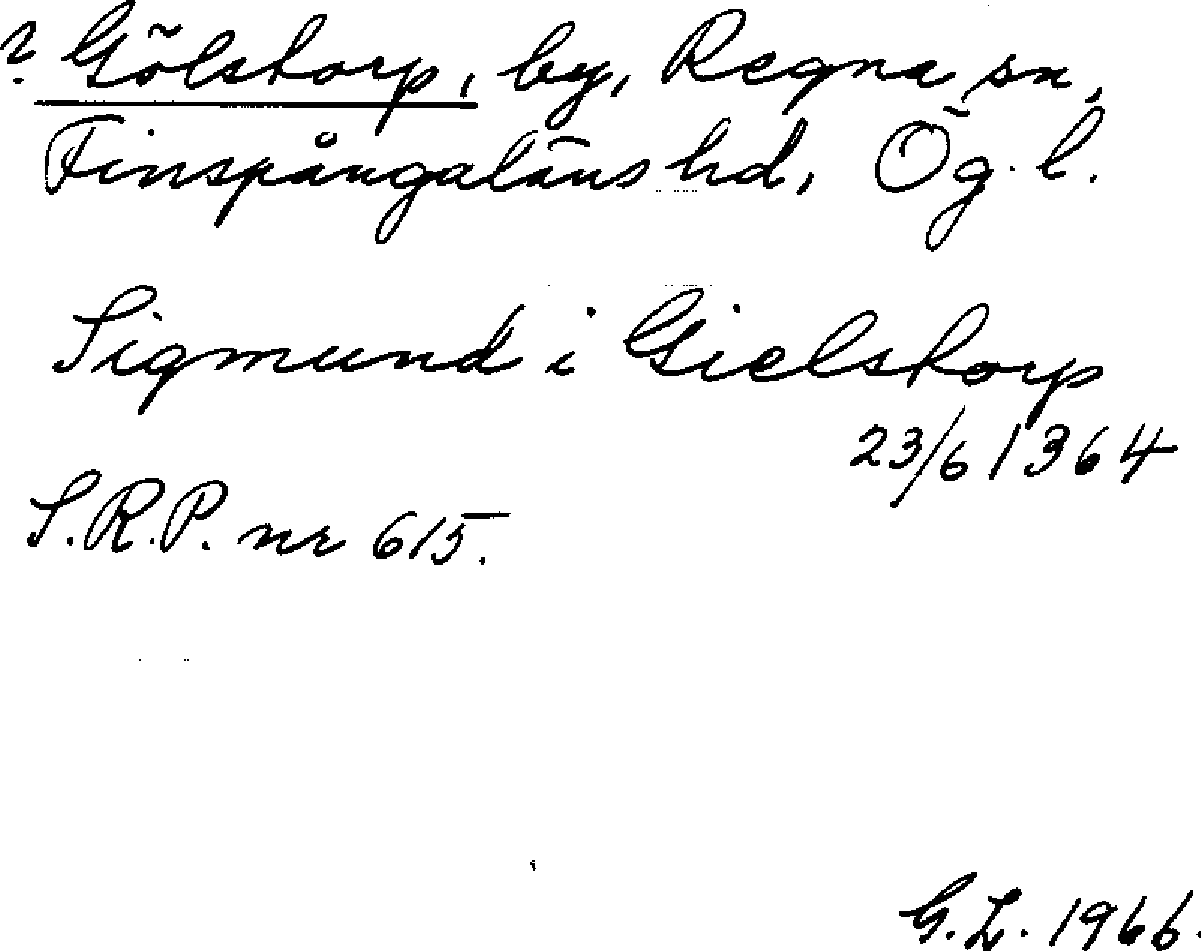 ? Gölstorp, by, Regna sn,
Finspångaläns hd, Ög. l.
Sigmund i Gielstorp
23/6 1364
S.R.P. nr 615.
G.L. 1966.